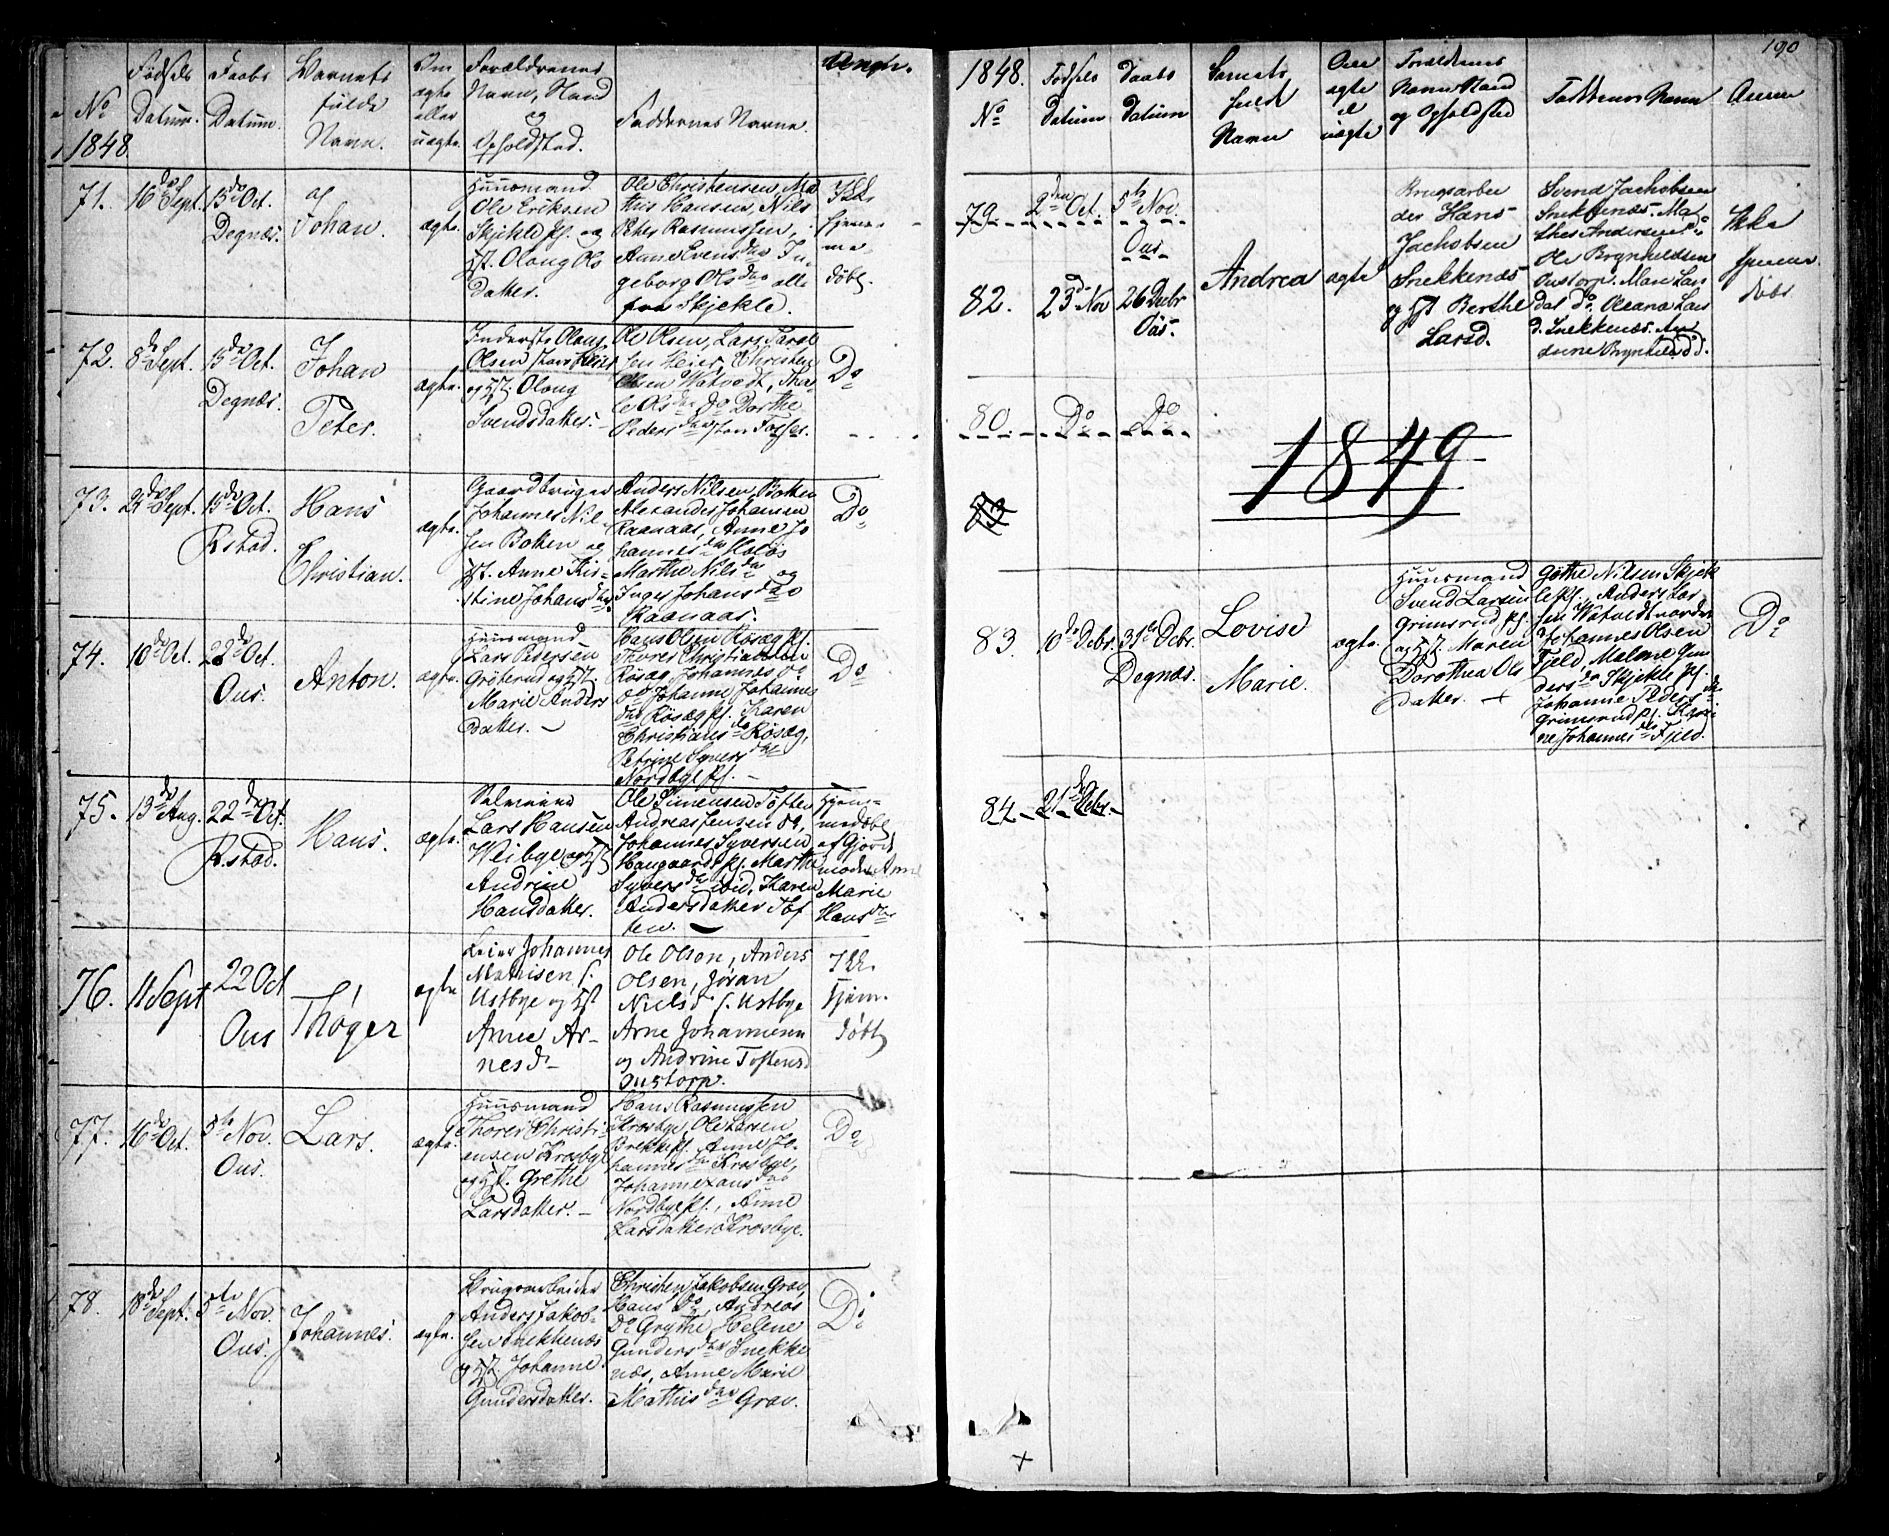 No
1848.
Fødsels
Datum.
Daabs
Datum.
Barnets
fulde
Navn.
Om
ægte
eller
uægte.
Forældrenes
Navn, Stand
og
Opholdsted.
Faddernes Navne.
Anm.
71.
16de Sept.
15de Oct.
Degnæs.
Johan.
ægte.
Huusmand
Ole Eriksen
Skjekle pl. og
Hst. Oloug Ols
datter.
Ole Christensen, Ma
this Hansen, Nils
Peter Rasmussen,
Anne Evensdtr In
geborg Olsdtr alle
fra Skjekle.
Ikke
hjem
me
døbt.
72.
8de Sept.
15de Oct.
Degnæs.
Johan
Peter.
ægte.
Olsen
og Hst. Oloug
Svendsdatter.
Ole Olsen, Lars
sen Heier, Christen
Olsen Watvedt,
Dorthe
Pedersdtr
Do
73.
24de Sept.
15de Oct.
R.stad.
Hans
Christian.
ægte.
Gaardbruger
Johannes Nil
sen Botten og
Hst. Anne Kir-
stine Johansdtr
Anders Nilsen, Botten
Alexander Johansen
Raanaas, Anne Jo
hannesdtr Holøs
Marthe Nilsdtr og
Inger Johansdtr
Raanaas.
Do
74.
10de Oct.
22de Oct.
Ous.
Anton.
ægte.
Huusmand
Lars Pedersen
Grøterud og Hst.
Marie Anders
datter.
Hans Olsen Røsæg pl.
Thorer Christiansen
Røsæg, Johannes Do
Do Johanne Johannes
dtr Røsæg pl. Karen
Christiansdtr Røsæg,
Petrine Syversdtr
Nordbye pl.
Do
75.
13de Aug.
22de Oct.
R.stad.
Hans.
ægte.
Selveier
Lars Hansen
Weibye og Hst
Andrine
Hansdatter.
Ole Simensen Toften
Andreas Jensen do,
Johannes Syversen
Haugaard pl. Marthe
Syversdtr ibid, Karen
Andersdatter Tof
ten.
Hjem-
medøbt
af Gjord
moder Anne
Marie
Hansdtr
76.
11 Sept
22 Oct
Ous
Thøger
ægte
Leier Johannes
Mathisen S.
Ustbye og Hst
Anne Ar-
nesd
Ole Olsen, Anders
Olsen, Jøran
Nielsd S. Ustbye
Arne Johannesen
og Andrine Toftensd
Oustorp.
Ikke
Hjem.
døbt
77.
16de Oct.
5te Nov.
Ous.
Lars.
ægte.
Huusmand
Thorer Christi-
ensen Krosbye
og Hst. Grethe
Larsdatter.
Hans Rasmussen
Krosbye, Ole Larsen
Brekke pl. Anne Jo-
hannesdtr Krosbye,
Johanne Hansdtr
Nordbye pl., Anne
Larsdatter Krosbye.
Do
78.
18de Sept.
5te Nov.
Ous.
Johannes.
ægte.
Brugsarbeider
Anders Jakob-
sen Snekkenæs
og Hst. Johanne
Gundersdatter.
Christen Jakobsen Grav
Hans Do, Andreas
Do Grythe, Helene
Gundersdtr Snekke
næs, Anne Marie
Mathisdtr Grav.
Do
190
1848.
No
Fødsels
Datum
Daabs
Datum
Barnets
fulde
Navn
Om
ægte
el
uægte
Forældrenes
Navn Stand
og Opholdsted
Faddernes Navn
Anm
79.
2den Oct.
5te Nov.
Ous.
82.
23de Nov
26 Decbr
Ous.
Andrea
ægte
Brugsarbei
der Hans
Jachobsen
Snekkenæs
og Hst Berthe
Larsd.
Svend Jachobsen
Snekkenæs. Ma
thes Andersen Do
Ole Brynhildsen
Oustorp. Mari Lars
dat do. Oleana Lars
d. Snekkenæs. An
drine Brynhildsd d.
Ikke
hjemme
døbt
80.
Do
Do
1849
83
83.
10de Decbr.
31te Decbr.
Degnæs.
Lovise
Marie.
ægte.
Huusmand
Svend Larsen
Grimsrud pl.
og Hst. Maren
Dorothea Ols
datter.
Gøthe Nilsen Skjek
le pl., Anders Lar
sen Watvedt nordre
Johannes Olsen
Fjeld, Malene Gun
dersdtr Skjekle pl.
Johanne Pedersdtr
Grimsrud pl. Kari
ne Johannesdtr Fjeld.
Do
84.
21de Decbr.